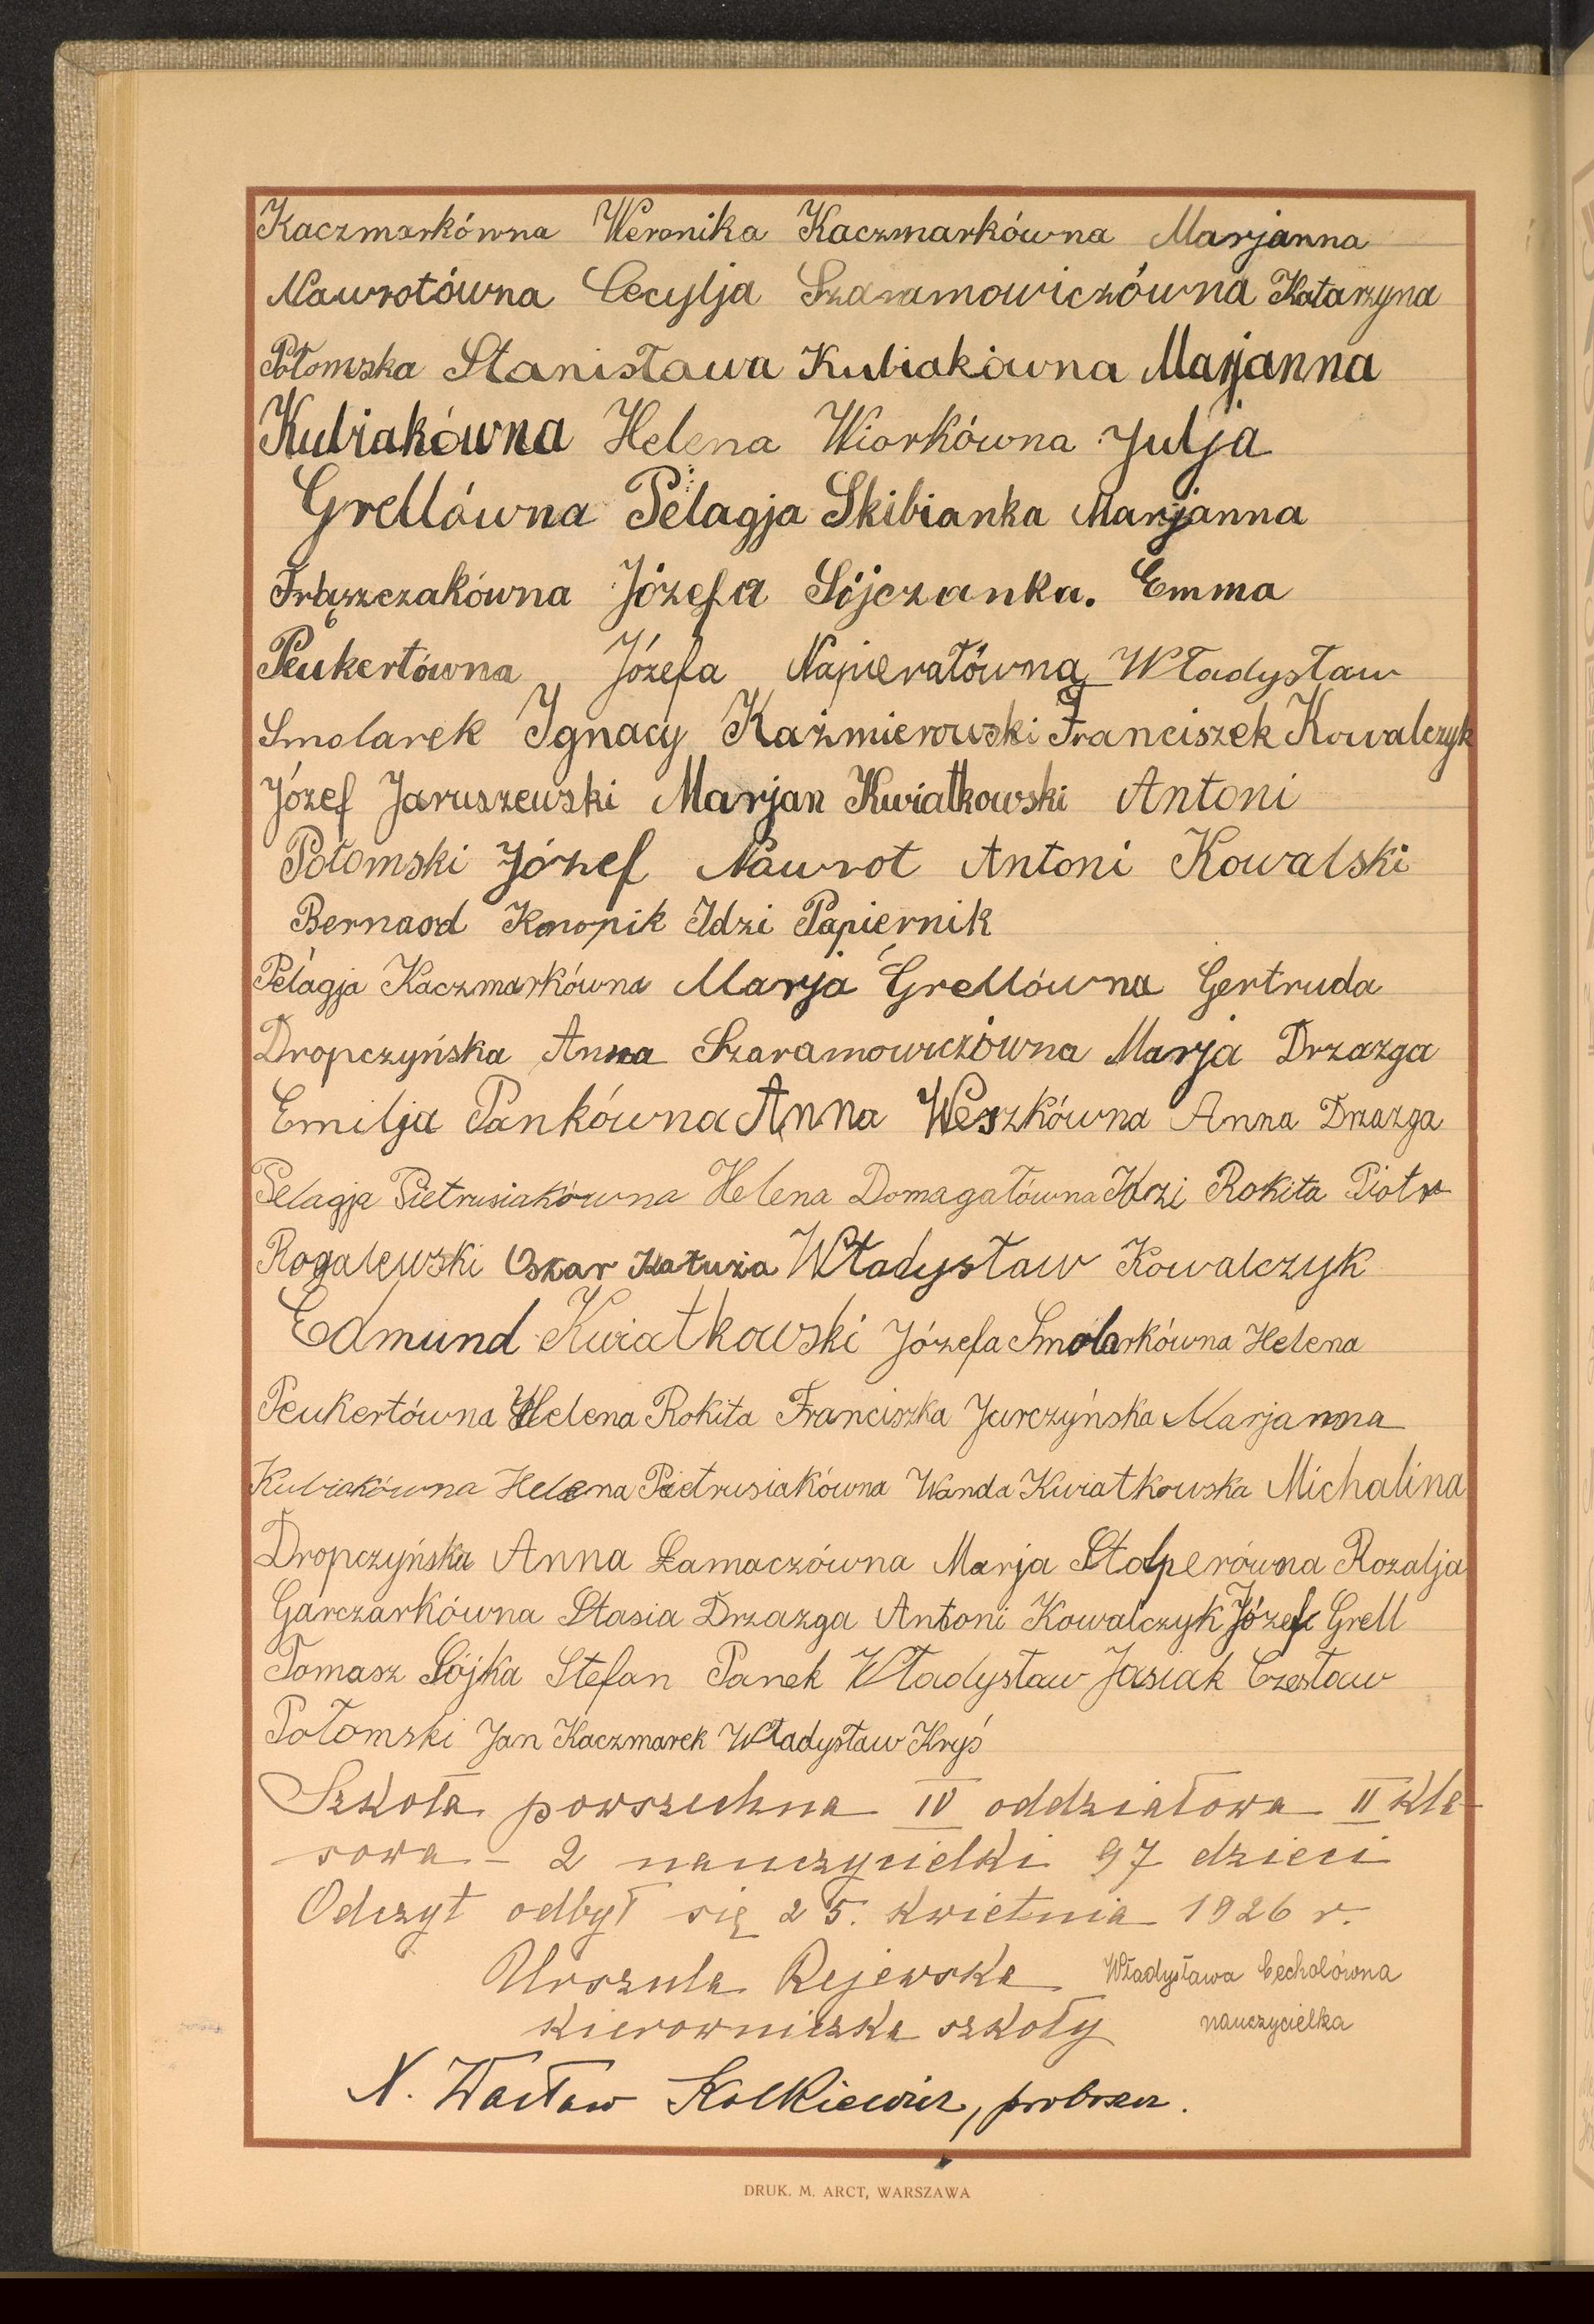 Kaczmarkówna Weronika Kaczmarkówna Marjanna
Nawrotówna Cecylja Szaramowiczówna Katarzyna
Połomska Stanisława Kubiakówna Marjanna
Kubiakówna Helena Wiorkówna Julja
Grellówna Pelagja Skibianka Marjanna
Frąszczakówna Józefa Sójczanka. Emma
Peukertówna Józefa Napierałówna Władysław
Smolarek Ignacy Kaźmierowski Franciszek Kowalczyk
Józef Jaruszewski Marjan Kwiatkowski Antoni
Połomski Józef Nawrot Antoni Kowalski
Bernard Konopik Idzi Papiernik
Pelagja Kaczmarkówna Marja Grellówna Gertruda
Dropczyńska Anna Szaramowiczówna Marja Drzazga
Emilja Pankówna Anna Weszkówna Anna Drzazga
Pelagja Pietrusiakówna Helena Domagałówna Idzi Rokita Piotr
Rogalewski Oskar Kałuża Władysław Kowalczyk
Edmund Kwiatkowski Józefa Smolarkówna Helena
Peukertówna Helena Rokita Franciszka Jurczyńska Marjanna
Kubiakówna Helena Pietrusiakówna Wanda Kwiatkowska Michalina
Dropczyńska Anna Łamaczówna Marja Stolperówna Rozalja
Garczarkówna Stasia Drzazga Antoni Kowalczyk Józef Grell
Tomasz Sójka Stefan Panek Władysław Jasiak Czesław
Połomski Jan Kaczmarek Władysław Kryś
Szkoła powszechna IV oddziałowa II kla-
sowa - 2 nauczycielki 97 dzieci
Odczyt odbył się 25. kwietnia 1926 r.
Urszula Rejewska Władysława Cecholówna
kierowniczka szkoły nauczycielka
X. Wacław proboszcz.
DRUK. M. ARCT, WARSZAWA